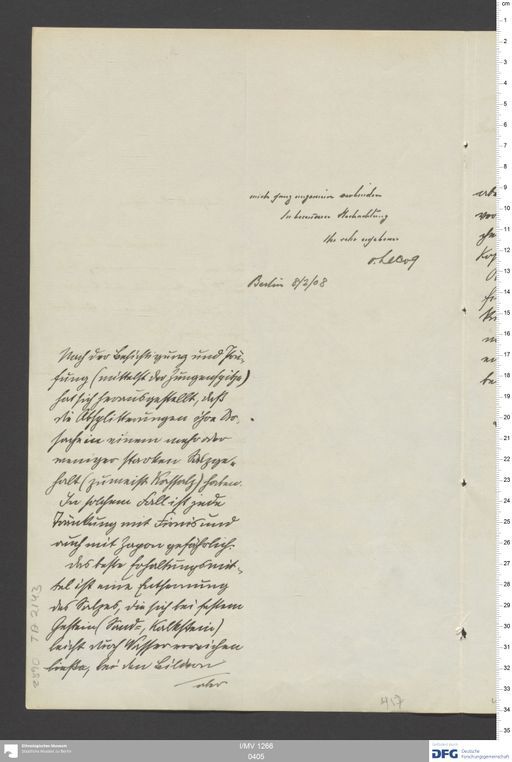 mich ganz ungemein verbinden
In besonderer Hochachtung
Ihr sehr ergebener
v. LeCoq
Berlin 8/2/08
Nach der Besichtigung und Prü-
fung (mittelst der Zungenspitze)
hat sich herausgestellt, daß
die Absplitterungen ihre Ur-
sache in einem mehr oder
weniger starken Salzge-
halt (zumeist Kochsalz) haben.
In solchem Fall ist jede
Tränkung mit Firnis und
auch mit Zapon gefährlich.
Das beste Erhaltungsmit-
tel ist eine Entfernung
des Salzes, die sich bei festem
Gestein (Sand-, Kalkstein)
leicht durch Wasser erreichen
ließe, bei den Bildern
aber
417
Ethnologisches Museum
Staatliche Museen zu Berlin
I/MV 1266
0405
Gefördert durch
DFG Deutsche
Forschungsgemeinschaft
cm
1
2
3
4
5
6
7
8
9
10
11
12
13
14
15
16
17
18
19
20
21
22
23
24
25
26
27
28
29
30
31
32
33
34
35